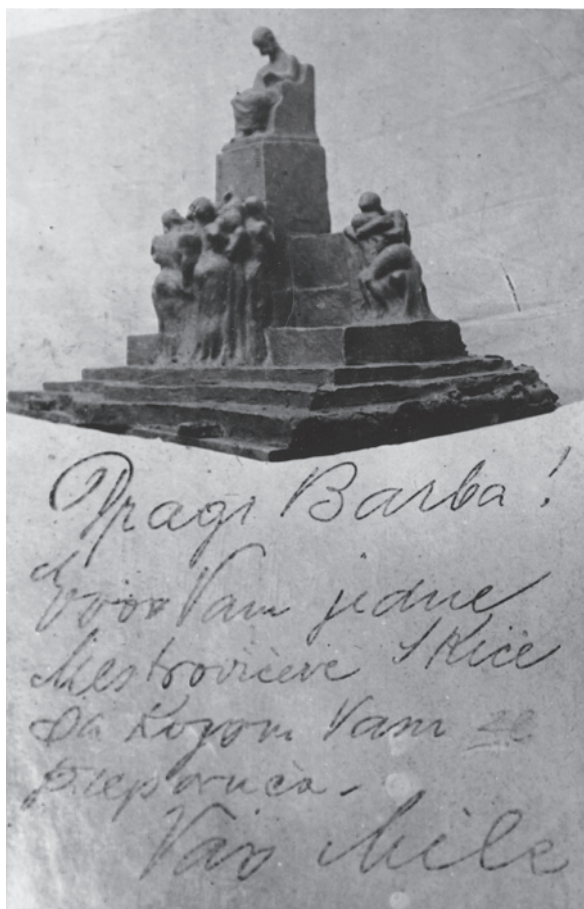 Dragi Barba!
Evo Vam jedne
Meštrovićeve skice
sa kojom Vam se
preporuča -
Vaš Mile